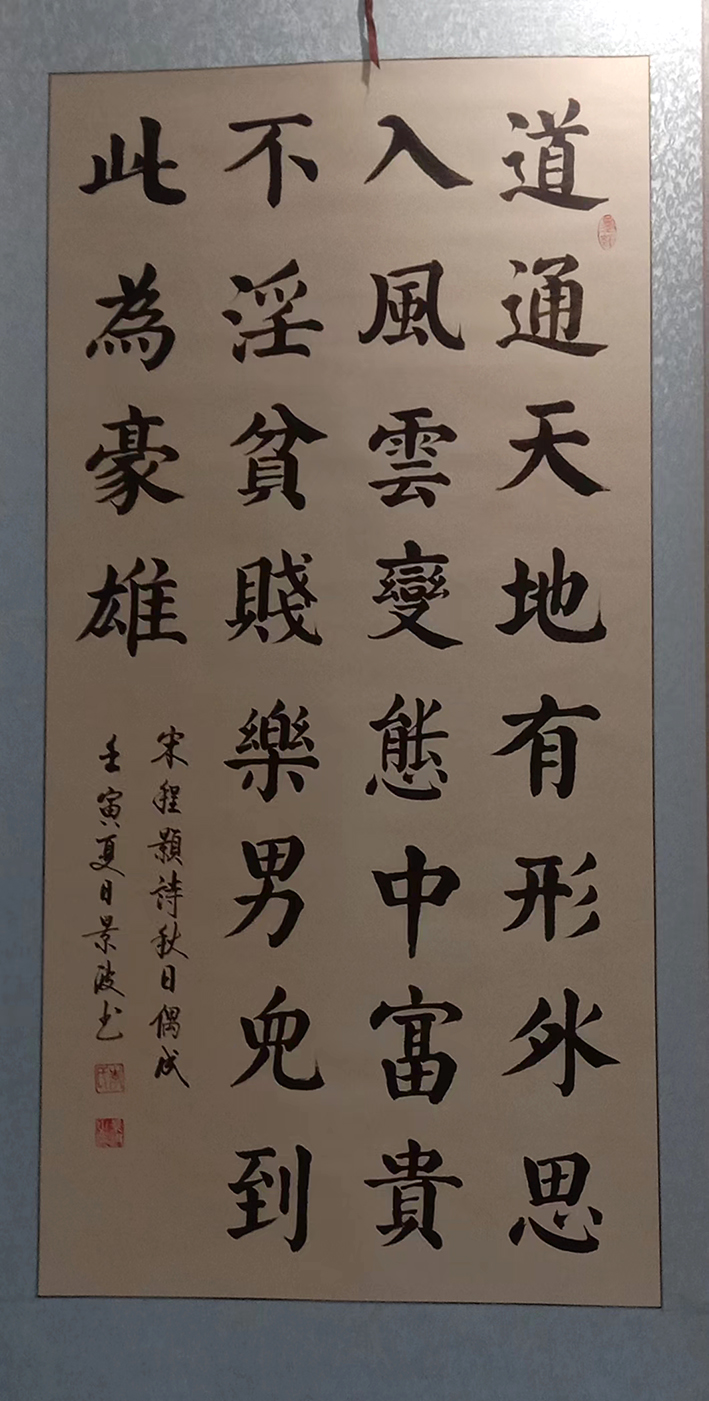 道通天地有形外思
入風雲變態中富貴
不淫貧賤樂男兒到
此為豪雄
宋程顥詩秋日偶成
壬寅夏日景波书